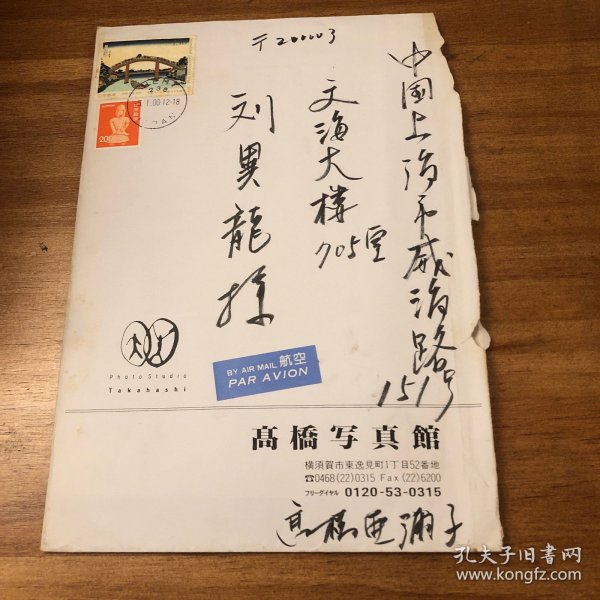 〒200003
中国上海市威海路151号
文海大楼
705室
刘異龍様
20
1.00-12-18
Photo Studio
Takahashi
BY AIR MAIL 航空
PAR AVION
髙橋写真館
横須賀市東逸見町1丁目52番地
☎0468(22)0315 Fax(22)6200
フリーダイヤル 0120-53-0315
髙橋亜彌子
孔夫子旧书网
www.kongfz.com